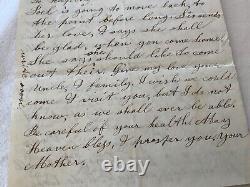 Jack is going to move back, to
the point before long. Sis sends
her love, I says she shall
be glad, when you come home,
She says should like to come
out their. Give my love your
Uncle, & family, I wish we could
come & visit you, but I do not
know, as we shall ever be able.
Be careful of your health May
Heaven bless, & prosper you, Your
Mother.